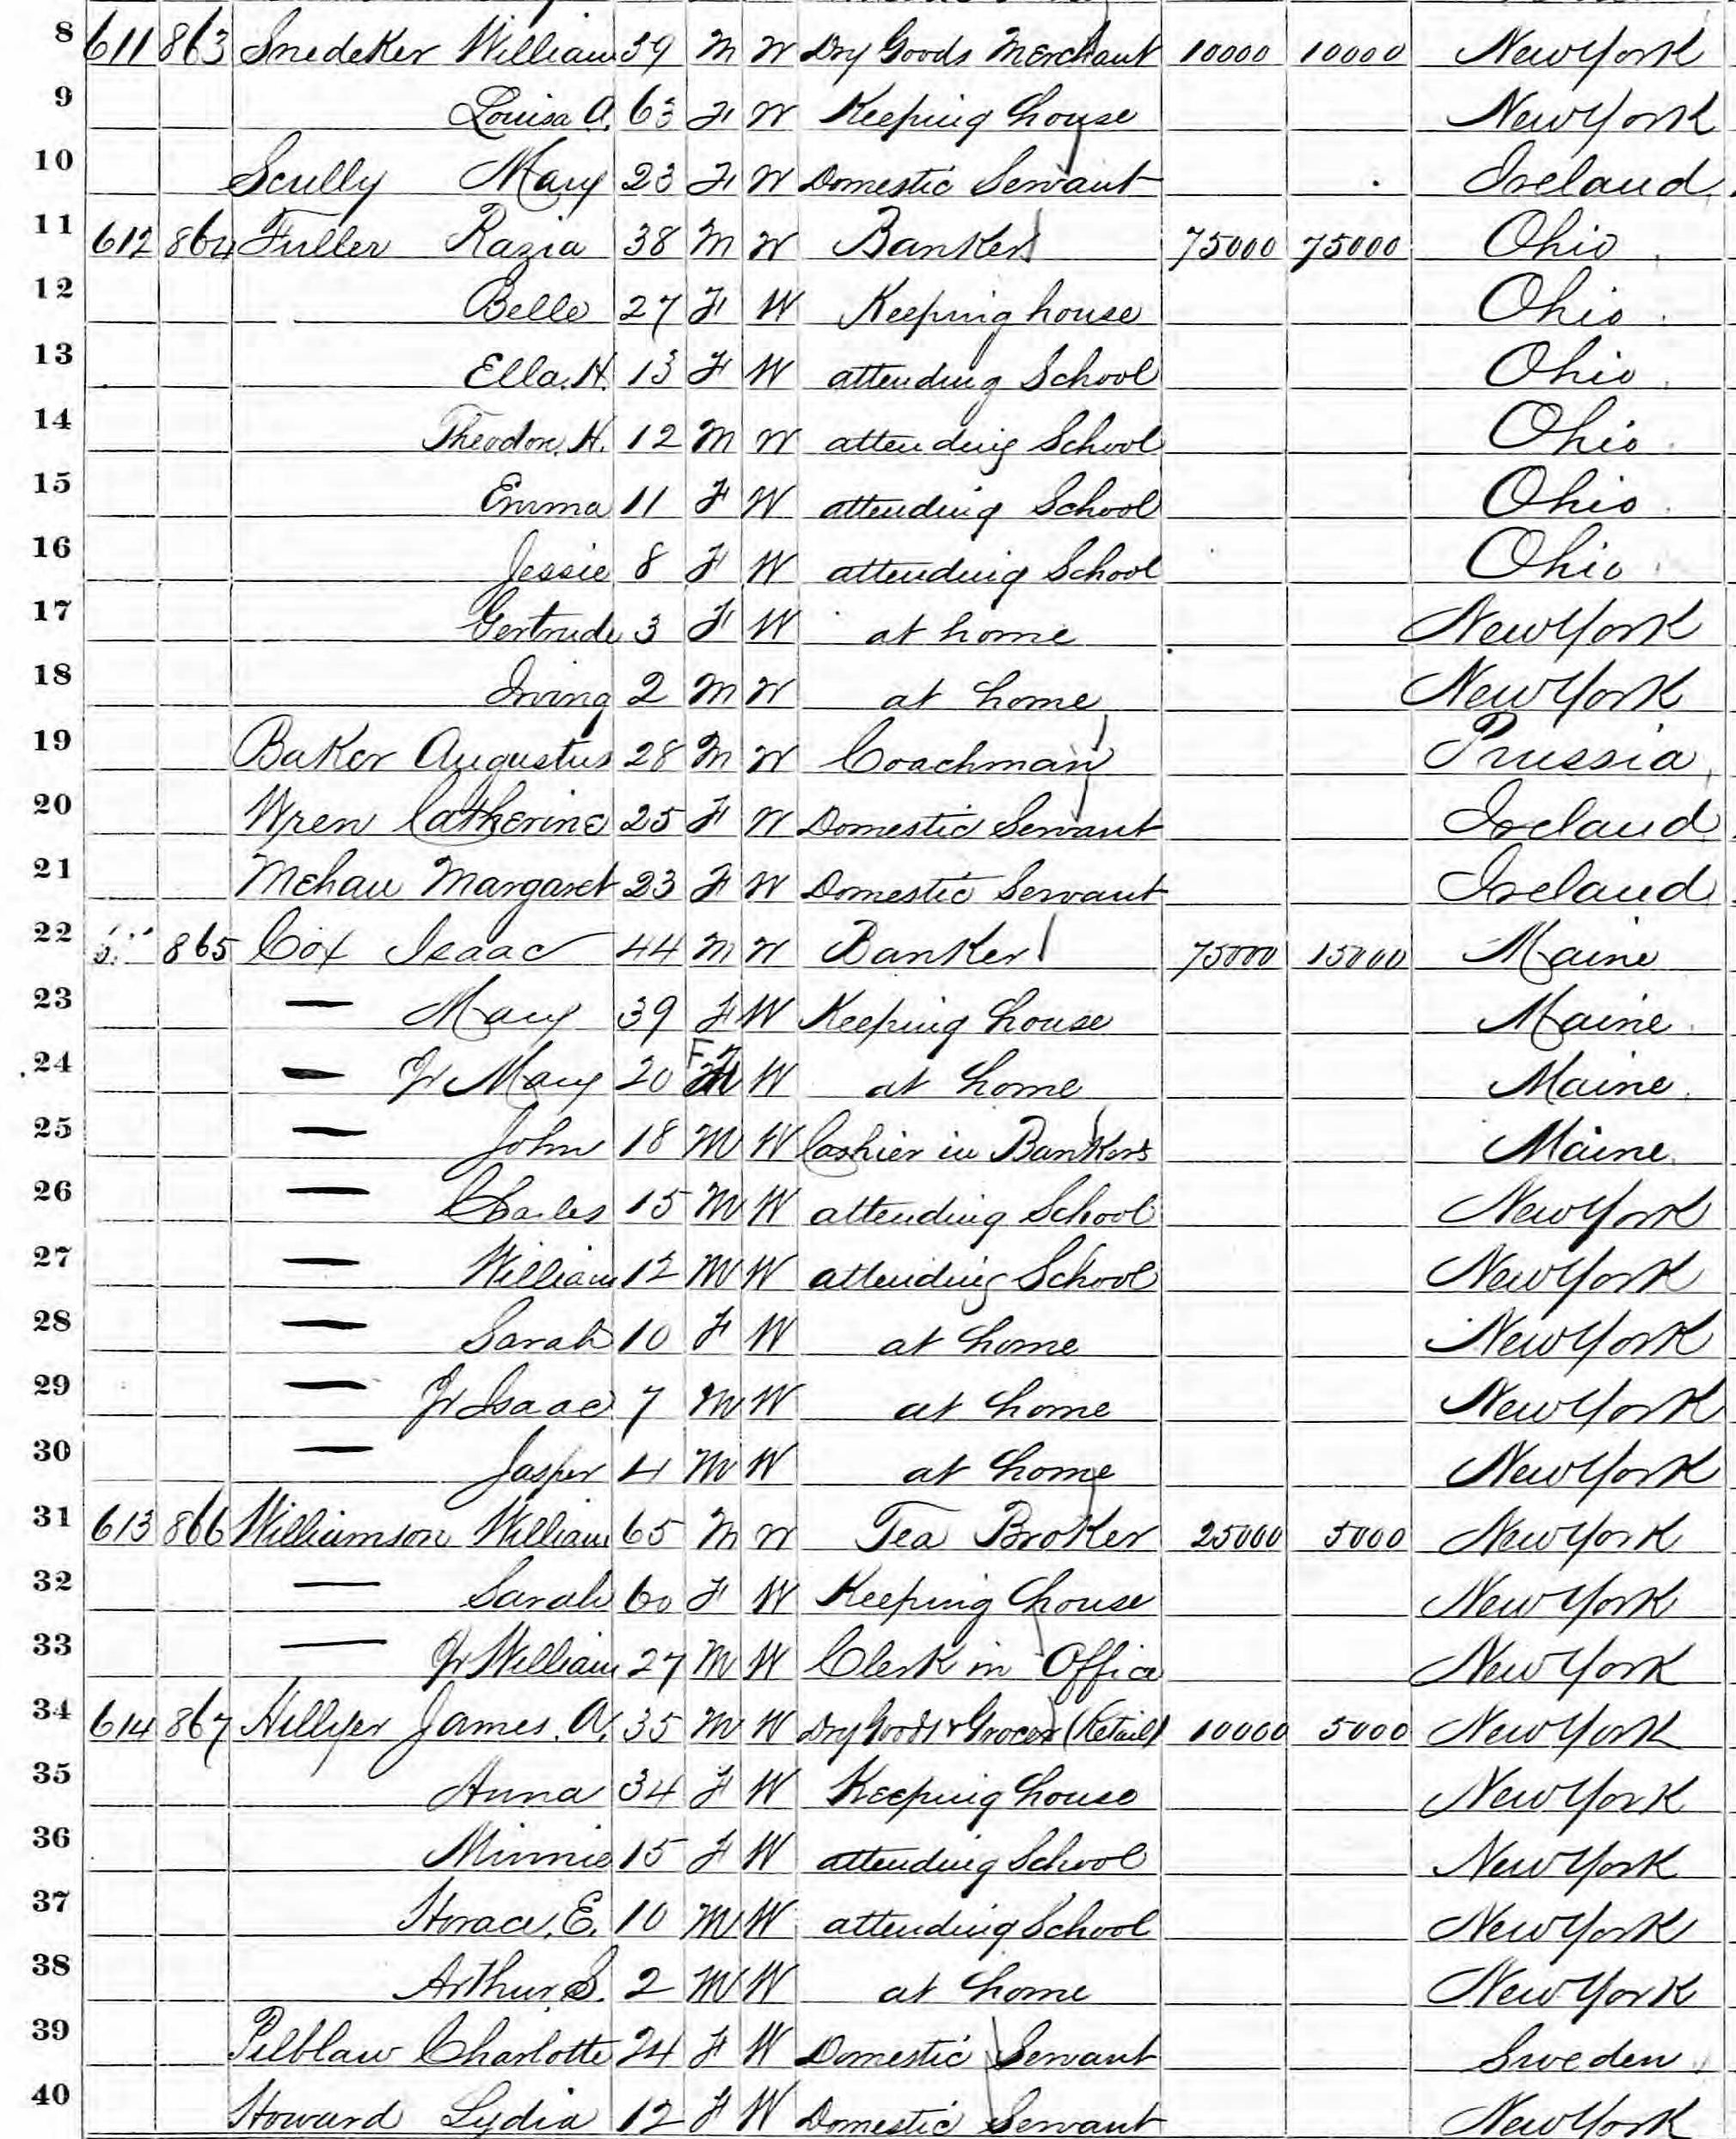 8 611 863 Snedeker William 39 M W Dry Goods Merchant 10000 10000 New York
9 Louisa A. 63 F W Keeping house New York
10 Scully Mary 23 F W Domestic Servant Ireland
11 612 864 Fuller Razia 38 M W Banker 75000 75000 Ohio
12 Belle 27 F W Keeping house Ohio
13 Ella. H. 13 F W attending School Ohio
14 Theodore. H. 12 M W attending School Ohio
15 Emma 11 F W attending School Ohio
16 Jessie 8 F W attending School Ohio
17 Gertrude 3 F W at home New York
18 Irving 2 M W at home New York
19 Baker Augustus 28 M W Coachman Prussia
20 Wren Catherine 25 F W Domestic Servant Ireland
21 Mehan Margaret 23 F W Domestic Servant Ireland
22 865 Cox Isaac 44 M W Banker 75000 15000 Maine
23 — Mary 39 F W Keeping house Maine
24 — Jr Mary 20 F W at home Maine
25 — John 18 M W Cashier in Bankers Maine
26 — Charles 15 M W attending School New York
27 — William 12 M W attending School New York
28 — Sarah 10 F W at home New York
29 — Jr Isaac 7 M W at home New York
30 — Jasper 4 M W at home New York
31 613 866 Williamson William 65 M W Tea Broker 25000 5000 New York
32 — Sarah 60 F W Keeping house New York
33 — Jr William 27 M W Clerk in Office New York
34 614 867 Hillyer James. A. 35 M W Dry Goods & Grocer (Retail) 10000 5000 New York
35 Anna 34 F W Keeping house New York
36 Minnie 15 F W attending School New York
37 Horace. E. 10 M W attending School New York
38 Arthur. S. 2 M W at home New York
39 Charlotte 24 F W Domestic Servant Sweden
40 Howard Lydia 12 F W Domestic Servant New York